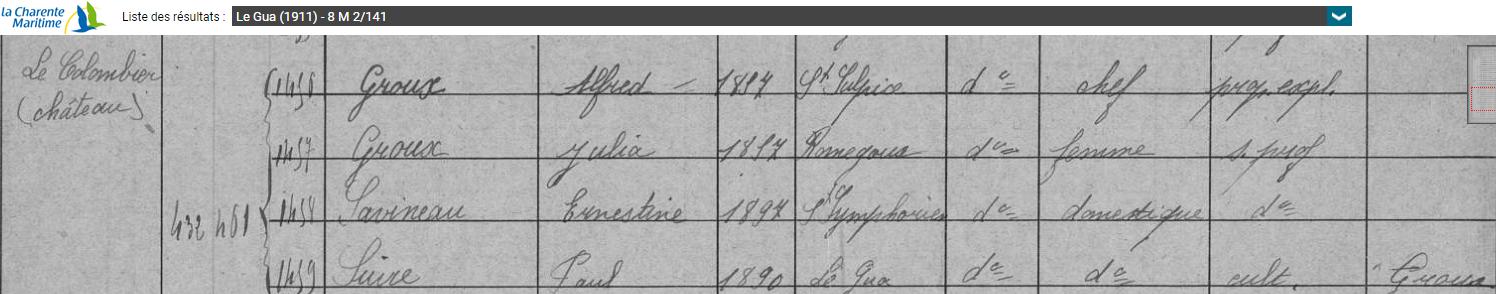 la Charente Maritime Liste des résultats : Le Gua (1911) - 8 M 2/141
Le Colombier (château) 1456 Groux Alfred - 1857 St Sulpice do chef prop. expl.
1457 Groux Julia 1857 Romegoux do femme s. prof
432 461 1458 Savineau Ernestine 1897 St Symphorien do domestique do
1459 Suire Paul 1890 Le Gua do do cult. Groux